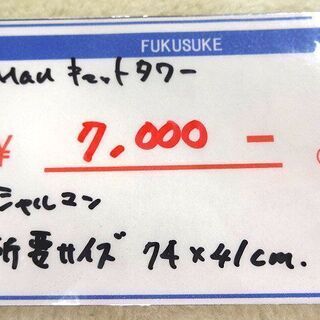 FUKUSUKE
Mau キャットタワー
¥ 7,000 -
シャルコン
所要サイズ 74×41cm.